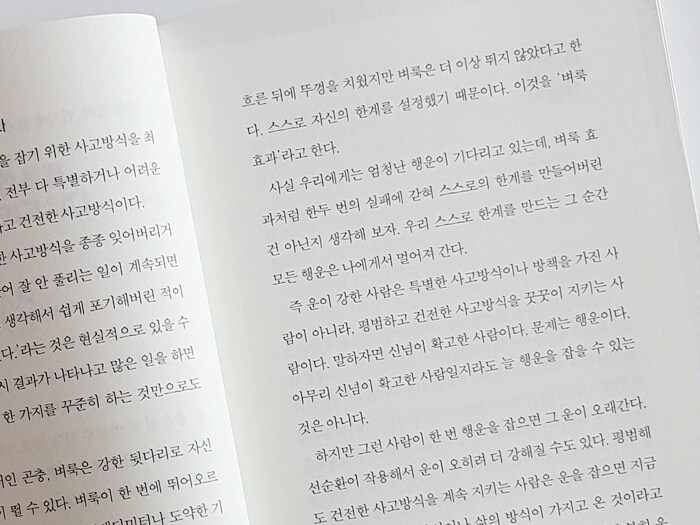 을 잡기 위한 사고방식을 최
전부 다 특별하거나 어려운
고 건전한 사고방식이다.
한 사고방식을 종종 잊어버리거
어 잘 안 풀리는 일이 계속되면
생각해서 쉽게 포기해버린 적이
다.'라는 것은 현실적으로 있을 수
시 결과가 나타나고 많은 일을 하면
한 가지를 꾸준히 하는 것만으로도
인 곤충, 벼룩은 강한 뒷다리로 자신
뛸 수 있다. 벼룩이 한 번에 뛰어오르
도약한 기
흐른 뒤에 뚜껑을 치웠지만 벼룩은 더 이상 뛰지 않았다고 한
다. 스스로 자신의 한계를 설정했기 때문이다. 이것을 '벼룩
효과'라고 한다.
사실 우리에게는 엄청난 행운이 기다리고 있는데, 벼룩 효
과처럼 한두 번의 실패에 갇혀 스스로의 한계를 만들어버린
건 아닌지 생각해 보자. 우리 스스로 한계를 만드는 그 순간
모든 행운은 나에게서 멀어져 간다.
즉 운이 강한 사람은 특별한 사고방식이나 방책을 가진 사
람이 아니라, 평범하고 건전한 사고방식을 꿋꿋이 지키는 사
람이다. 말하자면 신념이 확고한 사람이다. 문제는 행운이다.
아무리 신념이 확고한 사람일지라도 늘 행운을 잡을 수 있는
것은 아니다.
하지만 그런 사람이 한 번 행운을 잡으면 그 운이 오래간다.
선순환이 작용해서 운이 오히려 더 강해질 수도 있다. 평범해
도 건전한 사고방식을 계속 지키는 사람은 운을 잡으면 지금
삶의 방식이 가지고 온 것이라고